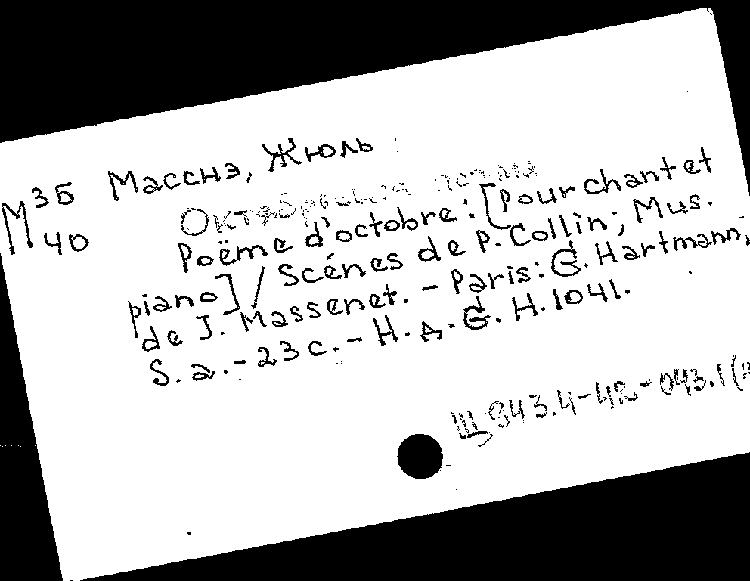 М 3Б
40
Масснэ, Жюль
Октябрьская поэма
Poëme d'octobre: [Pour chant et
piano] / Scénes de P. Collin; Mus.
de J. Massenet. - Paris: G. Hartmann,
S.a. - 23 с. - Н.д. G. H. 1041.
Щ943.4-42-043.1(